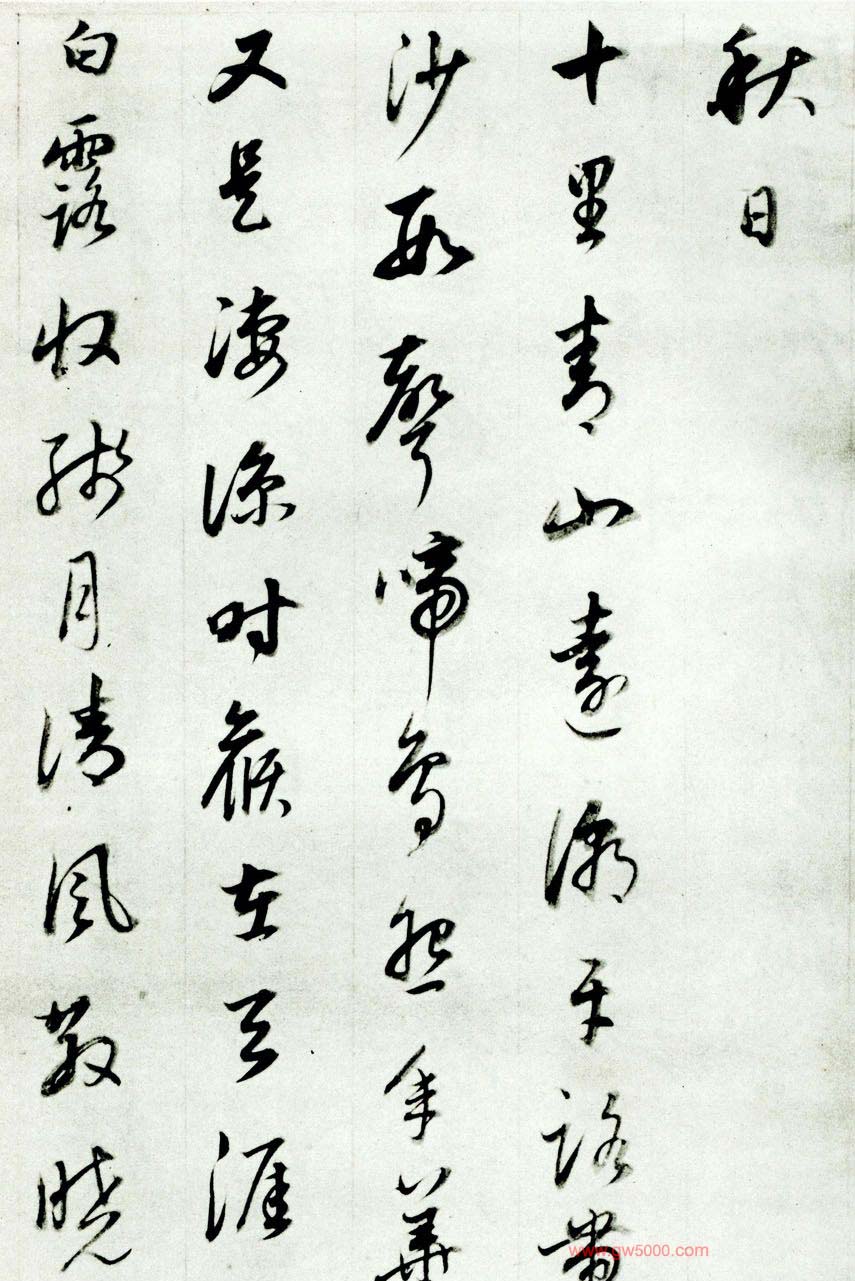 秋日
十里青山遠潮平路帶
沙數聲啼鳥怨年華
又是淒涼時候在天涯
白露收殘月清風散曉
www.gw5000.com